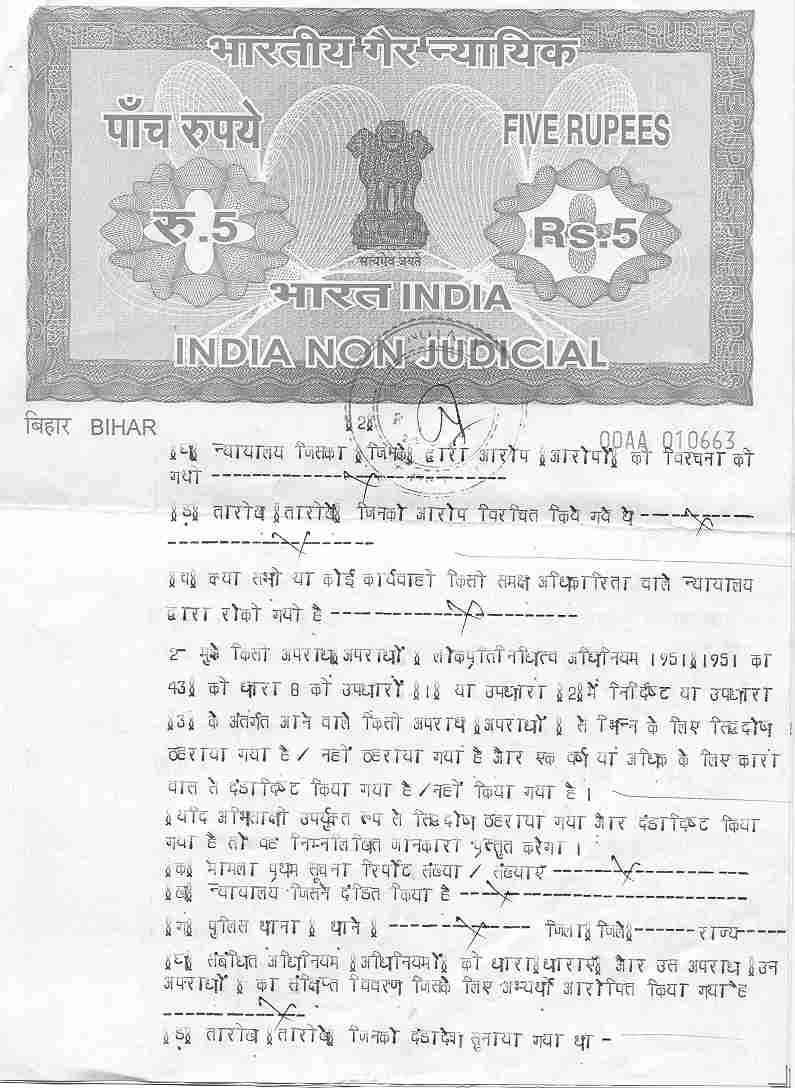 भारतीय गैर न्यायिक
पाँच रुपये FIVE RUPEES
रु.5 Rs.5
सत्यमेव जयते
भारत INDIA
INDIA NON JUDICIAL
बिहार BIHAR
§2§
QQAA 010663
§घ§ न्यायालय जिसका §जिनके§ द्वारा आरोप §आरोपों§ की विरचना की
गयी ----------------------------
§ड़§ तारीख §तारीखें§ जिनको आरोप विरचित किये गये थे -----------
--------------------
§च§ क्या सभी या कोई कार्यवाही किसी समक्ष अधिकारिता वाले न्यायालय
द्वारा रोकी गयी है ------------------------
2- मुझे किसी अपराध§अपराधों § लोकप्रतिनिधित्व अधिनियम 1951§1951 का
43§ की धारा 8 की उपधारा §1§ या उपधारा §2§में निर्दिष्ट या उपधारा
§3§ के अंतर्गत आने वाले किसी अपराध §अपराधों § से भिन्न के लिए सिद्धदोष
ठहराया गया है / नहीं ठहराया गया है और एक वर्ष या अधिक के लिए कारा
वास से दंडादिष्ट किया गया है /नहीं किया गया है ।
§यदि अभिसाक्षी उपर्युक्त रूप से सिद्धदोष ठहराया गया और दंडादिष्ट किया
गया है तो वह निम्नलिखित जानकारी प्रस्तुत करेगा ।
§क§ मामला प्रथम सूचना रिपोर्ट संख्या / संख्याएँ -------------------
§ख§ न्यायालय जिसने दंडित किया है ----------------------------
§ग§ पुलिस थाना § थाने § -------------- जिला§ जिले§------ राज्य-----
§घ§ संबंधित अधिनियम §अधिनियमों§ की धारा§धाराएँ§ और उस अपराध §उन
अपराधों § का संक्षिप्त विवरण जिसके लिए अभ्यर्थी आरोपित किया गया है
--------------
§ड़§ तारीख §तारीखें§ जिनको दंडादेश सुनाया गया था -